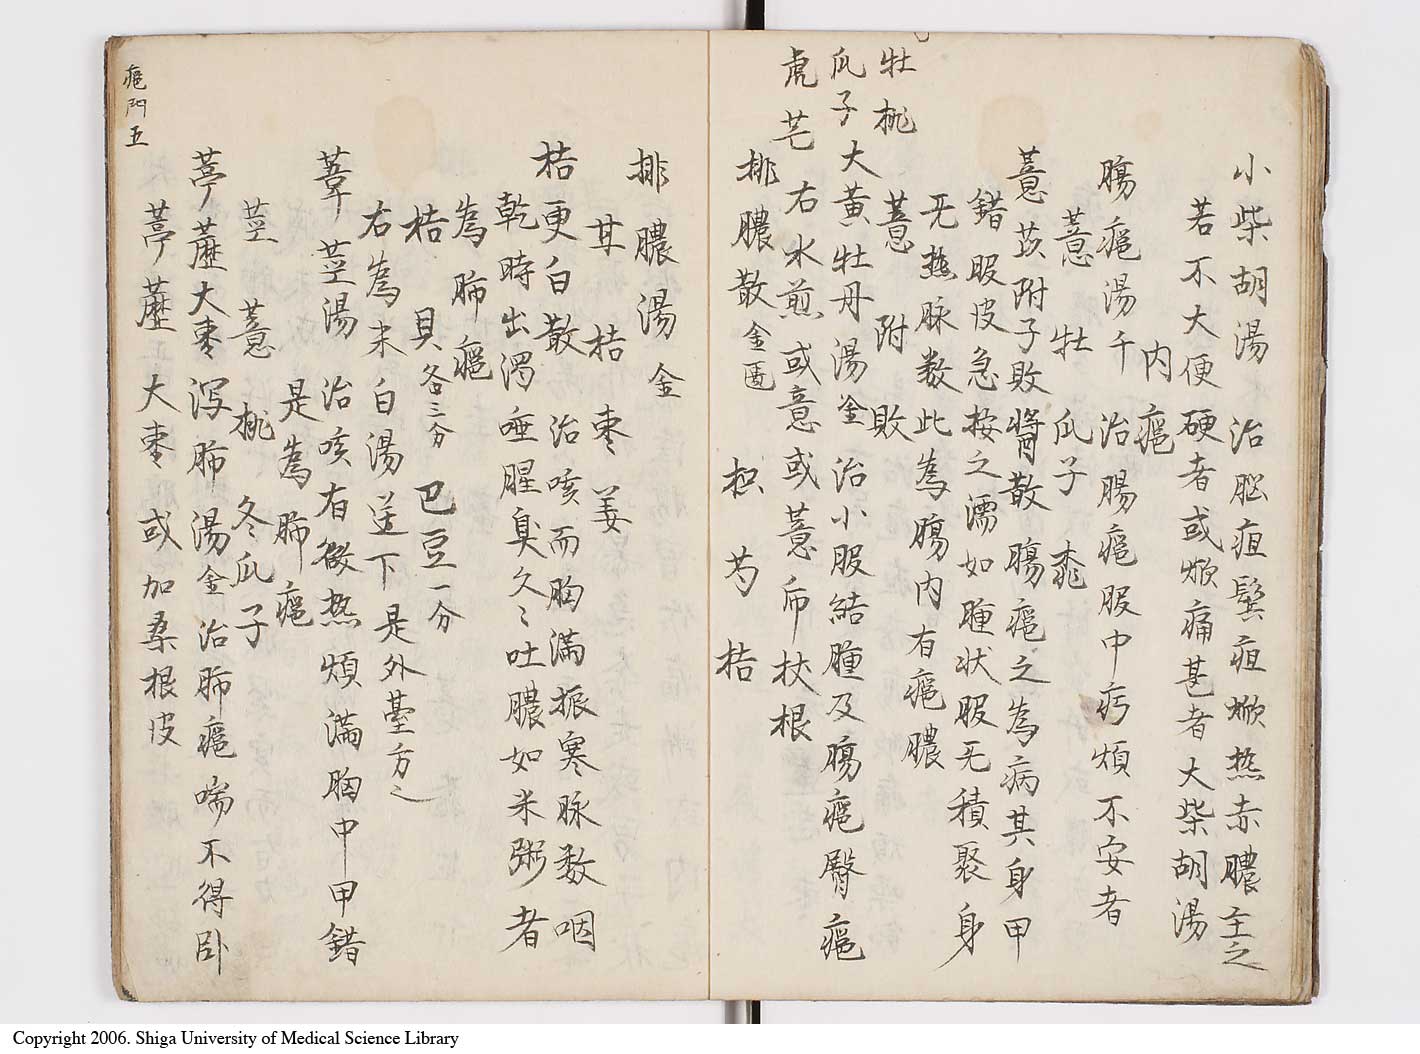 小柴胡湯 治脳疽鬢疽焮热赤膿主之
若不大便硬者或焮痛甚者大柴胡湯
内癰
腸癰湯千 治腸癰腹中疞煩不安者
薏 牡 瓜子 桃
薏苡附子敗醬散 腸癰之為病其身甲
錯腹皮急按之濡如腫状腹无積聚身
无热脉数此為腸内有癰膿
薏 附 敗
大黄牡丹湯金 治小腹結腫及腸癰臀癰
牡 桃 瓜子 虎 芒
右水煎或意或薏而扶根
排膿散金匱 枳 芍 桔
排膿湯金
甘 桔 枣 姜
桔更白散 治咳而胸満振寒脉数咽
乾時出濁唾腥臭久々吐膿如米粥者
為肺癰
桔 貝各三分 巴豆一分
右為末白湯送下是外臺方之
葦莖湯 治咳有微热煩満胸中甲錯
是為肺癰
莖 薏 桃 冬瓜子
葶藶大枣瀉肺湯金 治肺癰喘不得卧
葶藶 大枣 或加桑根皮
癰門 五
Copyright 2006. Shiga University of Medical Science Library